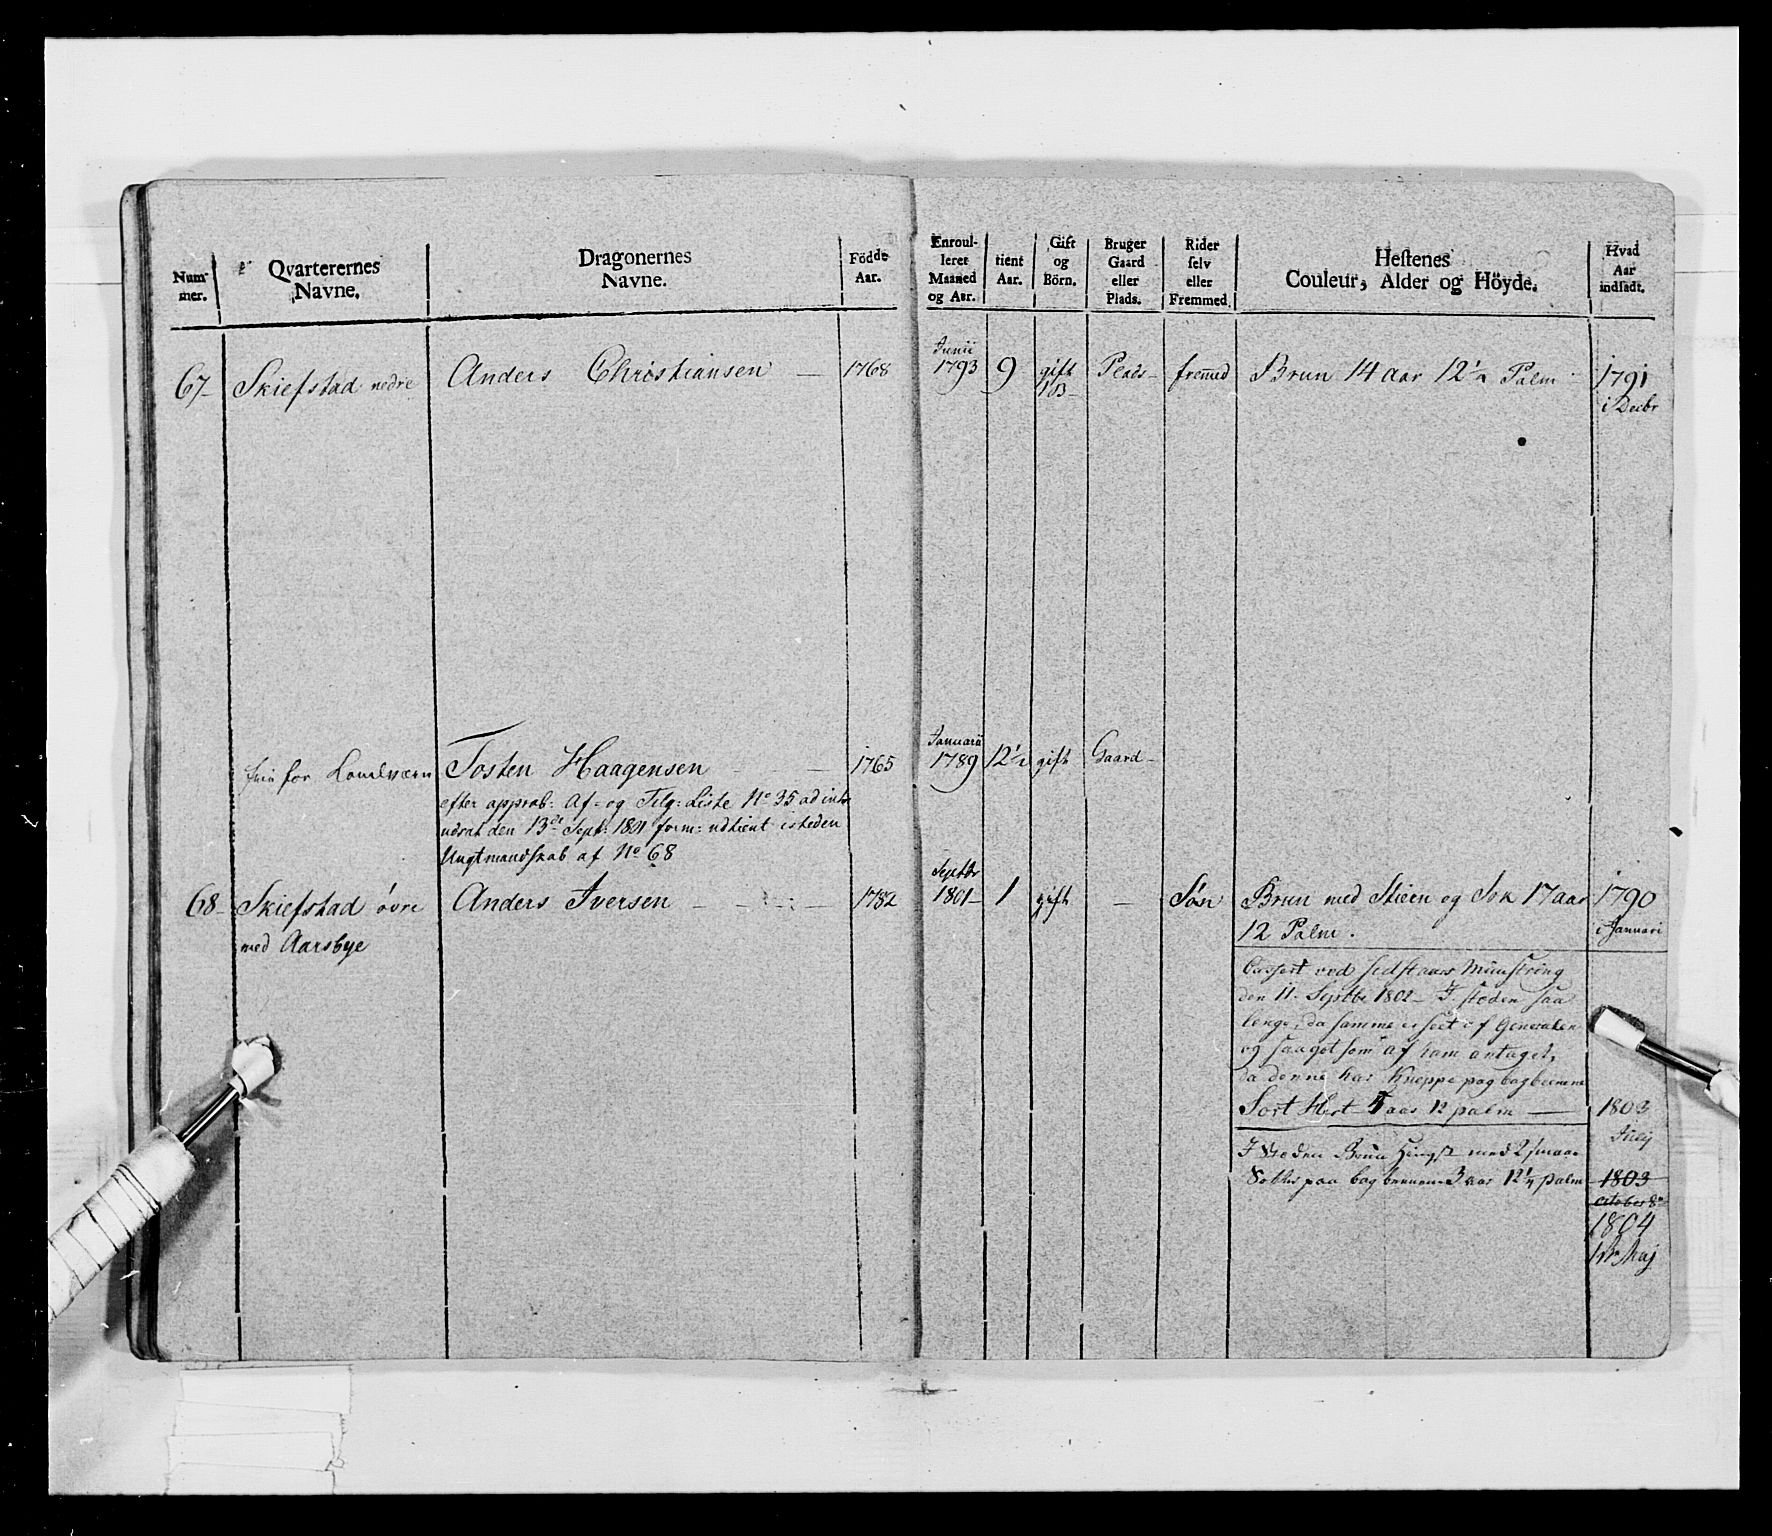 Num-
mer.
Qvarterernes
Navne.
Dragonernes
Navne.
Födde
Aar.
Enroul-
leret
Maaned
og Aar.
tient
Aar.
Gift
og
Börn.
Bruger
Gaard
eller
Plads.
Rider
selv
eller
Fremmed.
Hestenes
Couleur, Alder og Höyde.
Hvad
Aar
indsadt.
67 Skiefstad nedre Anders Christiansen 1768 Junii 1793 9 gift 1 B Plads fremed Brun 14 aar 12 1/2 Palm 1791
i Decbr
frie for Landværn Tosten Haagensen 1765 Januarii 1789 12 1/2 gift Gaard
efter approb: Af- og Tilg: Liste No 35 ad
udsat den 13de Sept: 1801 form: udtient isteden
Ungtmandskab af No 68
68 Skiefstad övre Anders Iversen 1782 Septbr 1801 1 gift - Søn Brun med Stieen og Sok 17 aar 1790
med Aarsbye 12 Palm. i Januari
Cassert ved sidstaars Munstring
den 11 Septbr 1802 I stæden saa
lenge, da samme er seet af Generalen
og saagot som af ham antaget,
da denne har Kneppe paa bagbeenene
Sort Hest 4 aar 12 palm 1803
July
I Stæden Brun Hingst med 2 smaa
Sokker paa bag beenene 3 aar 12 1/4 palm 1803
October
1804
Maj